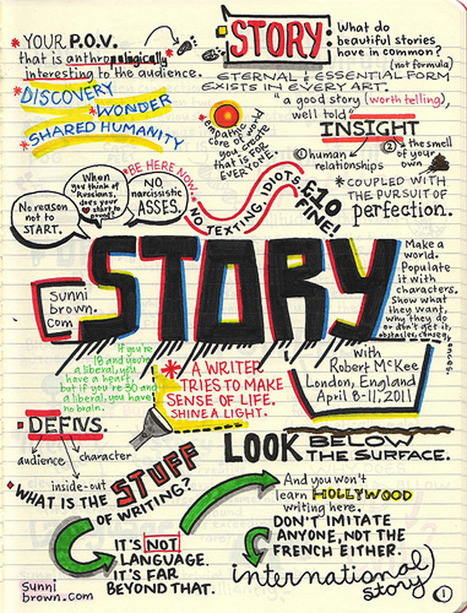 *YOUR P.O.V.
that is anthropologically*
interesting to the audience.
*DISCOVERY
*WONDER
*SHARED HUMANITY
STORY
What do
beautiful stories
have in common?
(not formula)
ETERNAL & ESSENTIAL FORM
EXISTS IN EVERY ART.
"a good story (worth telling),
well told"
INSIGHT
① human
relationships
② the smell
of your
own
*COUPLED WITH
THE PURSUIT OF
perfection.
*empathic
core of world
you create
that is FOR
EVERYONE.
No reason
not to
START.
When
you think of
Russians,
does your
start to
pound?
NO
narcissistic
ASSES.
*BE HERE NOW.
NO TEXTING, IDIOTS. £10
FINE!
STORY
Sunni
brown.
com
Make a
world.
Populate
it with
characters.
Show what
they want,
why they do
or don't get it,
obstacles,
with
Robert McKee
London, England
April 8-11, 2011
If you're
18 and you're
a liberal, you
have a heart,
but if you're 30 and
a liberal, you have
no brain.
*A WRITER
TRIES TO MAKE
SENSE OF LIFE.
SHINE A LIGHT.
LOOK BELOW
THE SURFACE.
audience
character
inside-out
*WHAT IS THE STUFF
OF WRITING?
IT'S NOT
LANGUAGE.
IT'S FAR
BEYOND THAT.
And you won't
learn HOLLYWOOD
writing here.
DON'T IMITATE
ANYONE, NOT THE
FRENCH EITHER.
international
story)
sunni
brown.com
①